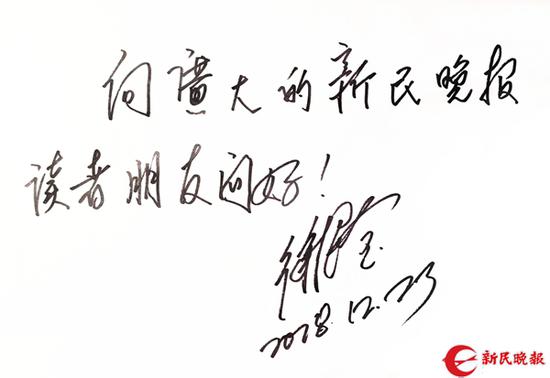 向廣大的新民晚报
读者朋友问好！
徐根宝
2018.12.23
新民晚报